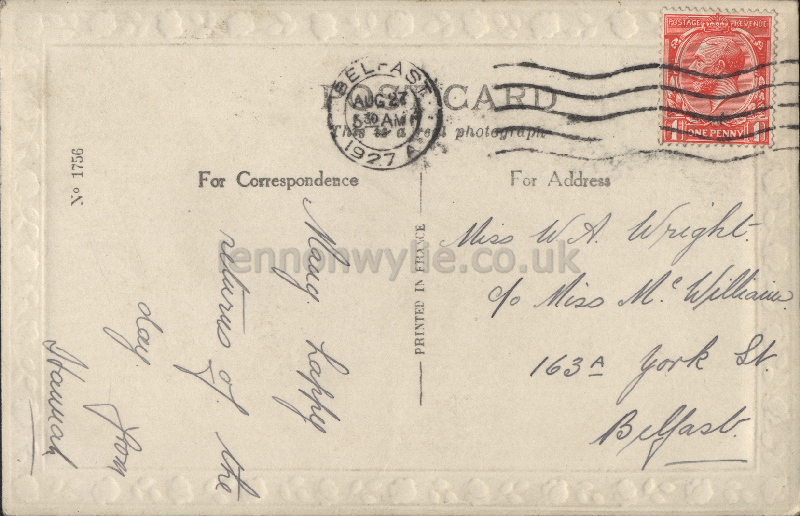 POST CARD
This is a real photograph
BELFAST
AUG 27
5.30 AM
1927
POSTAGE REVENUE
ONE PENNY
No 1756
For Correspondence
For Address
PRINTED IN FRANCE
Many happy
returns of the
day. from
Hannah
Miss W. A. Wright.
c/o Miss McWilliam
163A York St.
Belfast.
lennonwylie.co.uk